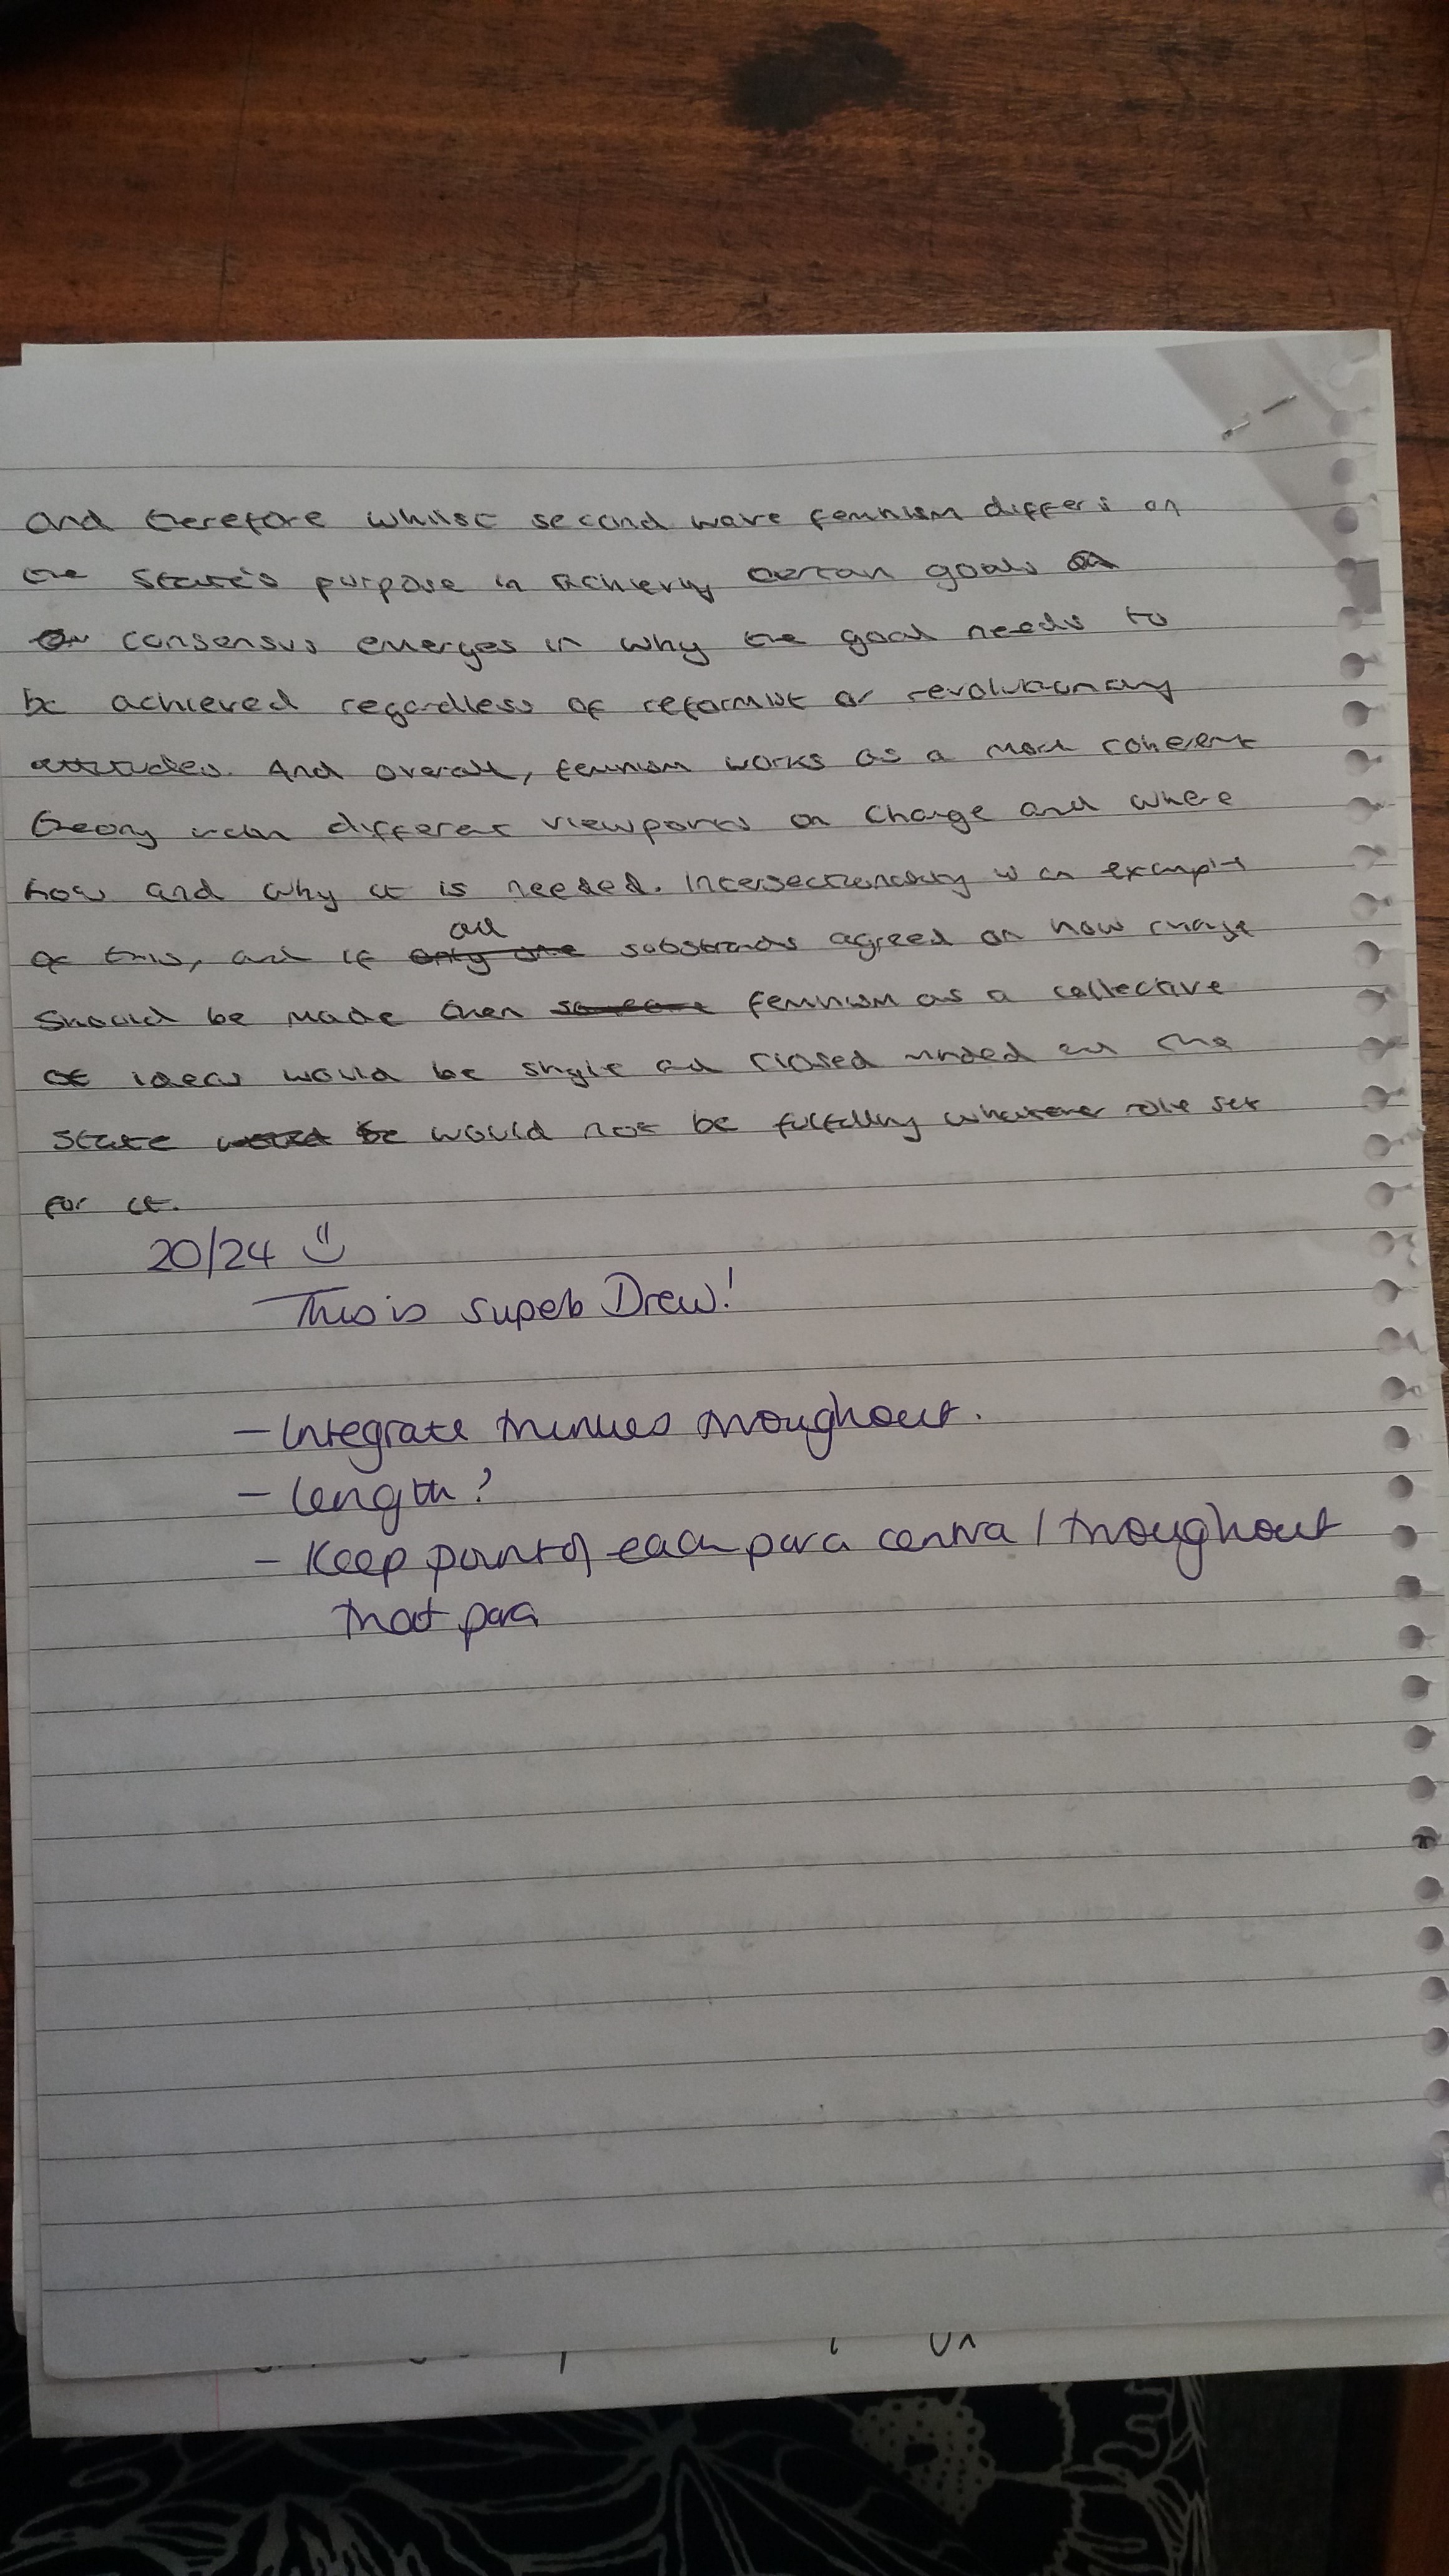 and therefore whilst second wave feminism differs on
the state's purpose in achieving certain goals
consensus emerges in why the goal needs to
be achieved regardless of reformist or revolutionary
attitudes. And overall, feminism works as a more coherent
theory with different viewpoints on change and where
how and why it is needed. Intersectionality is an example
of this, and if all substrands agreed on how change
should be made then feminism as a collective
of ideas would be single and closed minded and the
state would not be fulfilling whatever role set
for it.
20/24
This is superb Drew!
- Integrate thinkers throughout.
- Length?
- Keep point of each para central throughout
that para